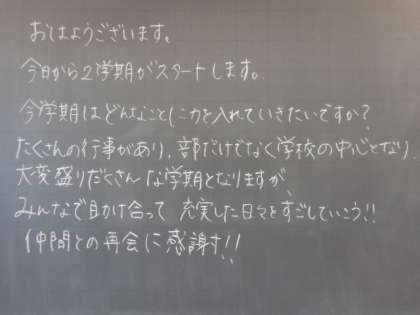 おはようございます。
今日から2学期がスタートします。
今学期はどんなことに力を入れていきたいですか？
たくさんの行事があり、部だけでなく学校の中心となり、
大変盛りだくさんな学期となりますが、
みんなで助け合って充実した日々をすごしていこう!!
仲間との再会に感謝す!!